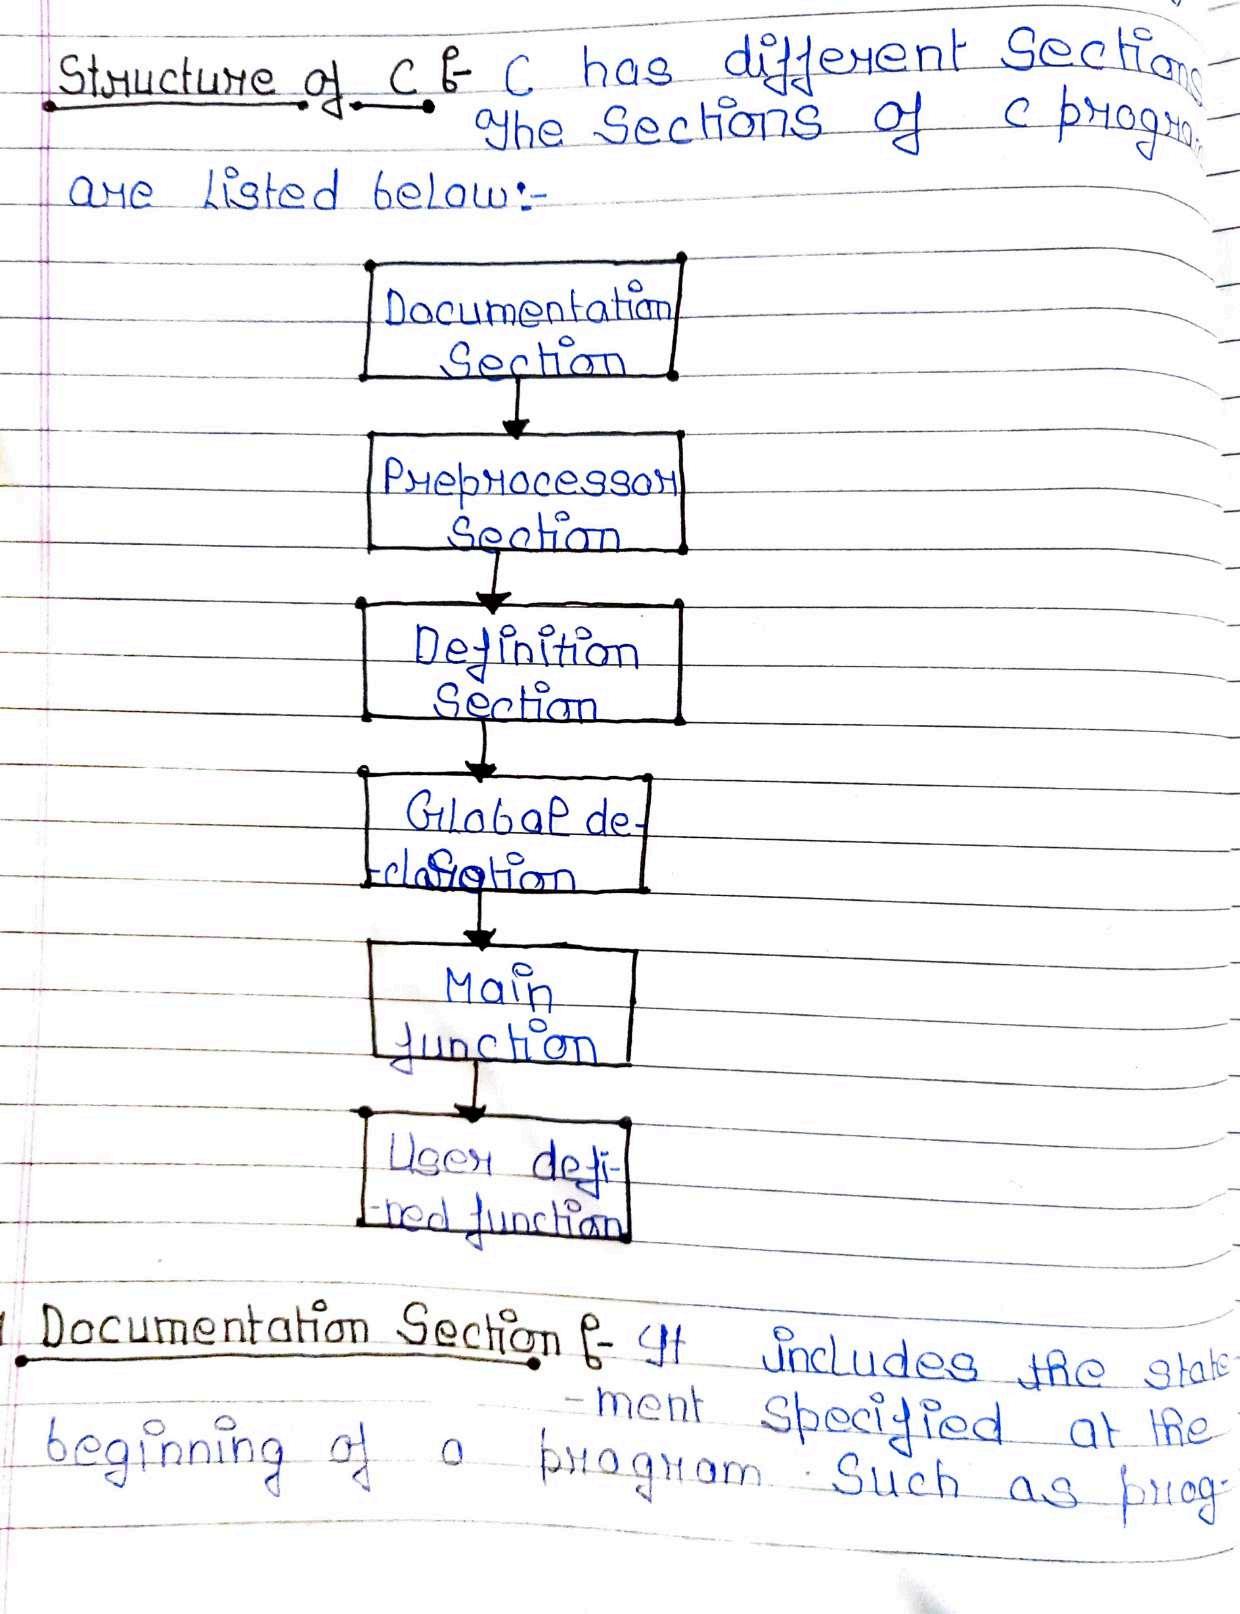 Structure of C :- C has different Sections
The Sections of C progra
are Listed below:-
Documentation
Section
Preprocessor
Section
Definition
Section
Global de-
-claration
Main
function
User defi-
-ned function
Documentation Section :- It includes the state
-ment specified at the
beginning of a program. Such as prog-